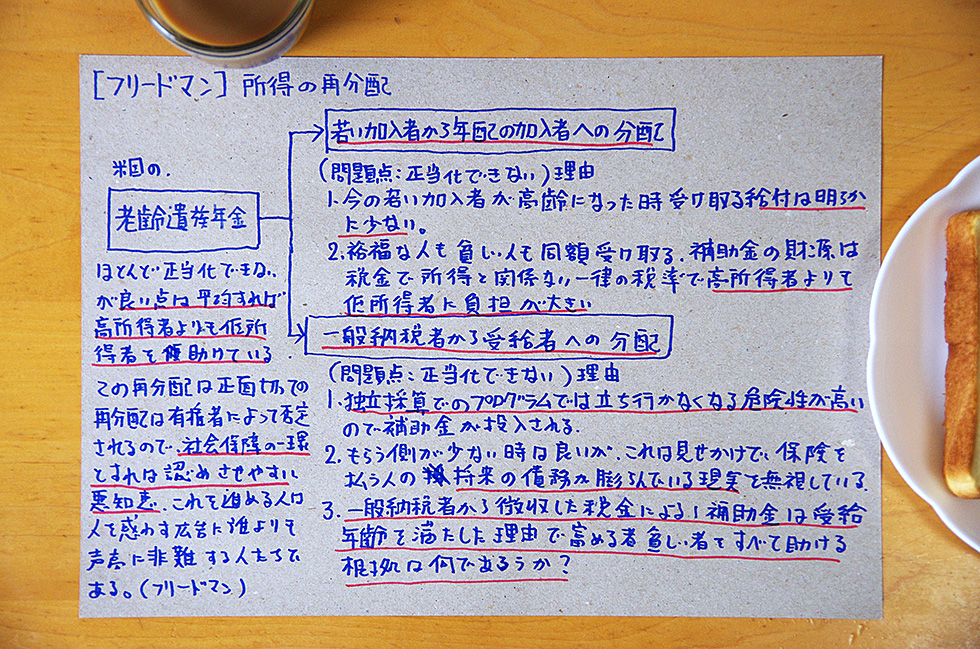 [フリードマン] 所得の再分配
米国の.
老齢遺族年金
ほとんど正当化できない
が良い点は平均すれば
高所得者よりも低所
得者を援助けている
この再分配は正面切っての
再分配は有権者によって否定
されるので、社会保障の一環
とすれば認めさせやすい
悪知恵. これを進める人は
人を惑わす広告に誰よりも
声高に非難する人たちで
ある。(フリードマン)
若い加入者から年配の加入者への分配
(問題点:正当化できない)理由
1. 今の若い加入者が高齢になった時受け取る給付は明らか
に少ない。
2. 裕福な人も貧しい人も同額受け取る. 補助金の財源は
税金で所得と関係ない一律の税率で高所得者よりて
低所得者に負担が大きい
一般納税者から受給者への分配
(問題点:正当化できない)理由
1. 独立採算でのプログラムでは立ち行かなくなる危険性が高い
ので補助金が投入される.
2. もらう側が少ない時は良いが、これは見せかけで、保険を
払う人の将来の債務が膨らんでいる現実を無視している.
3. 一般納税者から徴収した税金による補助金は受給
年齢を満たした理由で富める者貧しい者をすべて助ける
根拠は何であるうか?